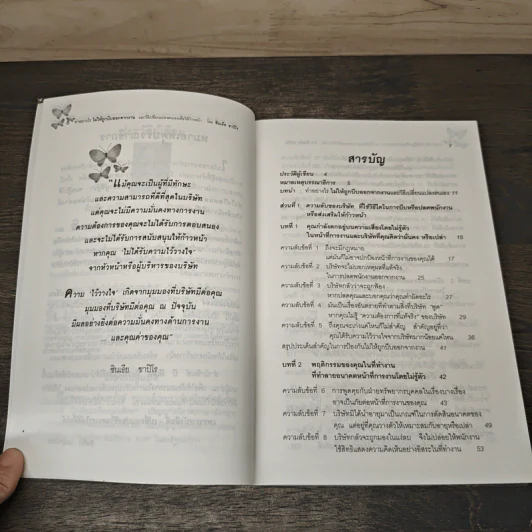 "แม้คุณจะเป็นผู้ที่มีทักษะ
และความสามารถที่ดีที่สุดในบริษัท
แต่คุณจะไม่มีความมั่นคงทางการงาน
ความต้องการของคุณจะไม่ได้รับการตอบสนอง
และจะไม่ได้รับการสนับสนุนให้ก้าวหน้า
หากคุณ 'ไม่ได้รับความไว้วางใจ'
จากหัวหน้าหรือผู้บริหารของบริษัท
ความ 'ไว้วางใจ' เกิดจากมุมมองที่บริษัทมีต่อคุณ
มุมมองที่บริษัทมีต่อคุณ ณ ปัจจุบัน
มีผลอย่างยิ่งต่อความมั่นคงทางด้านการงาน
และคุณค่าของคุณ"
ซินเธีย ชาปิโร
สารบัญ
ประวัติผู้เขียน 4
หมายเหตุบรรณาธิการ 5
บทนำ - ทำอย่างไร ไม่ให้ถูกบีบออกจากงานและวิธีเปลี่ยนแปลงตนเอง 11
ส่วนที่ 1 ความลับของบริษัท ที่ใช้วิธีใดในการบีบหรือปลดพนักงาน
หรือส่งเสริมให้ก้าวหน้า
บทที่ 1 คุณกำลังตกอยู่บนความเสี่ยงโดยไม่รู้ตัว
ในหน้าที่การงานและบริษัทที่คุณคิดว่ามั่นคง หรือเปล่า? 15
ความลับข้อที่ 1 ถึงจะมีกฎหมาย
แต่มันก็ไม่อาจปกป้องหน้าที่การงานของคุณได้ 17
ความลับข้อที่ 2 บริษัทจะไม่บอกเหตุผลที่แท้จริง
ในการปลดพนักงานออกจากงาน 25
ความลับข้อที่ 3 บริษัทกลัวว่าจะถูกฟ้อง
หากปลดคุณและบอกคุณว่าคุณทำผิดอะไร
ความลับข้อที่ 4 มันเป็นเรื่องอันตรายที่ทำตามสิ่งที่บริษัท "พูด"
หากคุณไม่รู้ "ความต้องการที่แท้จริง" ของบริษัท
ความลับข้อที่ 5 ถึงคุณจะเก่งแค่ไหนก็ไม่สำคัญ สำคัญอยู่ที่ว่า
คุณได้รับความไว้วางใจจากบริษัทมากน้อยแค่ไหน
สรุปประเด็นสำคัญในการป้องกันไม่ให้ถูกบีบออกจากงาน
บทที่ 2 พฤติกรรมของคุณในที่ทำงาน
ที่ทำลายอนาคตหน้าที่การงานโดยไม่รู้ตัว 42
ความลับข้อที่ 6 การพูดคุยกับฝ่ายทรัพยากรบุคคลในเรื่องบางเรื่อง
อาจเป็นภัยต่อหน้าที่การงานของคุณ 43
ความลับข้อที่ 7 บริษัทมิได้นำอายุมาเป็นเกณฑ์ในการตัดสินอนาคตของ
คุณ แต่อยู่ที่คุณวางตัวให้เหมาะสมกับอายุหรือเปล่า 49
ความลับข้อที่ 8 บริษัทกลัวจะถูกมองในแง่ลบ จึงไม่ปล่อยให้พนักงาน
ใช้สิทธิแสดงความคิดเห็นอย่างอิสระในที่ทำงาน 53